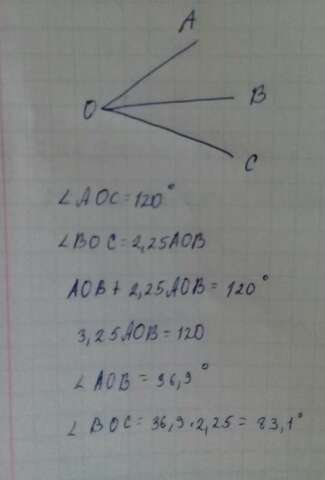 A
O
B
C
∠AOC = 120°
∠BOC = 2,25AOB
AOB + 2,25AOB = 120°
3,25AOB = 120
∠AOB = 36,9°
∠BOC = 36,9 · 2,25 = 83,1°